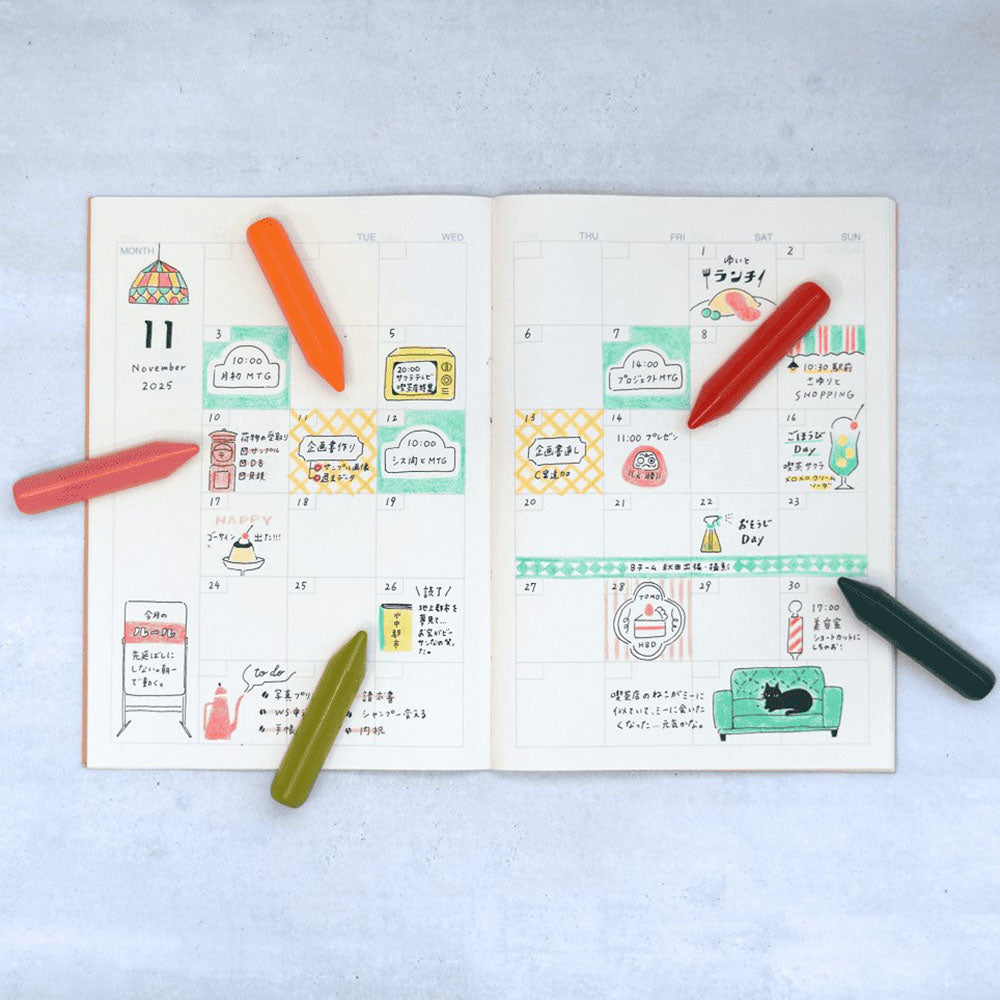 TUE
WED
MONTH
11
November
2025
3
10:00
月初 MTG
5
20:00
サクラテレビ
喫茶店特集
10
荷物の受取り
サンプル
DB
11
企画書作り
サンプル画像
週末データ
12
10:00
シス向とMTG
17
HAPPY
ゴーサイン 出た!!!
18
19
24
25
26
読了
地上都市を
夢見て…
お宝がピー
サンなの笑。
た。
水中都市
今月の
ルール
先延ばしに
しない。朝一
で動く。
to do
写真プリ
請求書
WS申
シャンプー変える
手帳
内祝
THU
FRI
SAT
SUN
1
ゆいと
ランチィ
2
6
7
14:00
プロジェクトMTG
8
10:30 駅前
さゆりと
SHOPPING
13
企画書直し
C案追加
14
11:00 プレゼン
16
ごほうび
Day
喫茶サクラ
メロメロクリーム
ソーダ
20
21
22
おそうじ
Day
23
Bチーム 秋田出張・撮影
27
28
TOMO
HBD
29
30
17:00
美容室
ショートカットに
しちゃお!
喫茶店のねこがミーに
似ていて、ミーに会いた
くなった…元気かな。